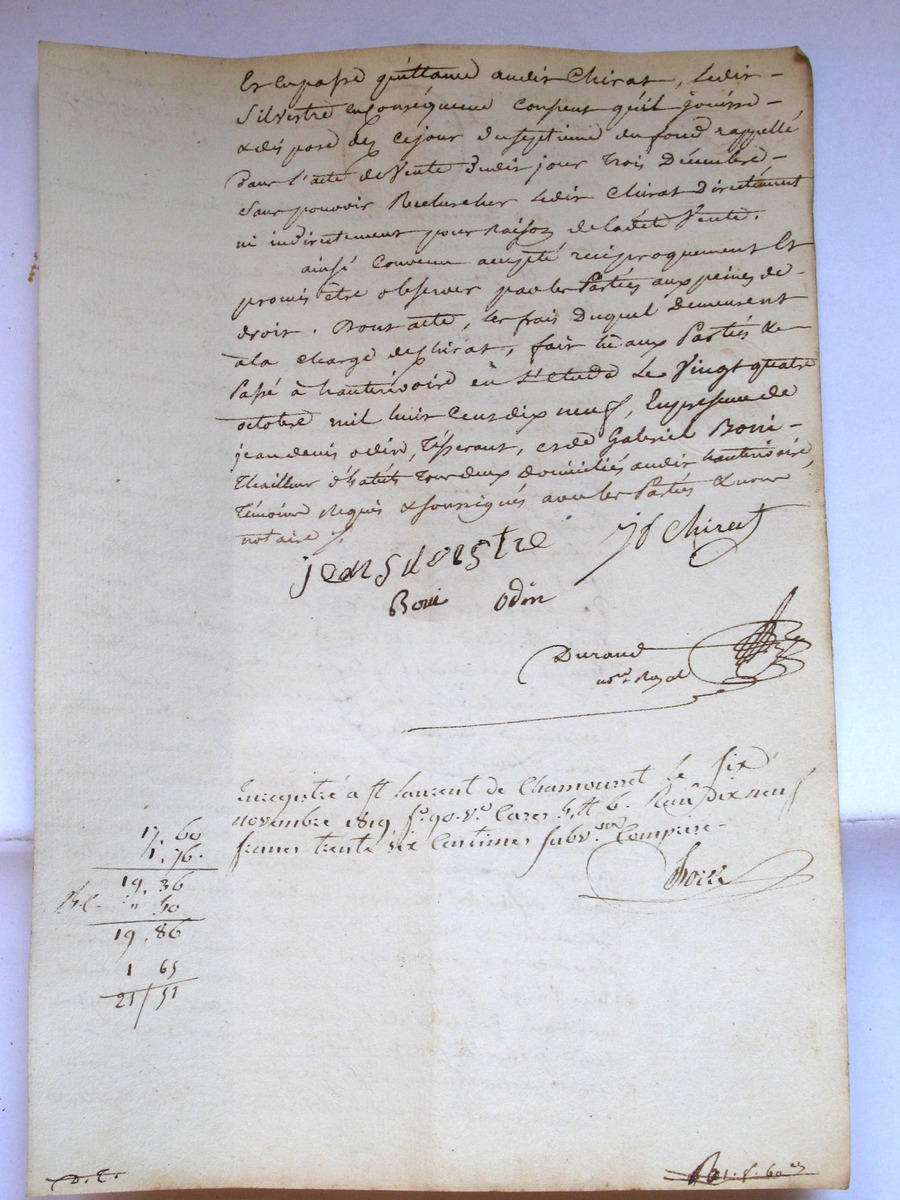 Et en passe quittance audit Chirat, ledit
Silvestre en conséquence consent quil jouisse
& dispose dez ce jour du septieme du fond rappellé
dans l'acte de Vente dudit jour trois Décembre
sans pouvoir Rechercher ledit Chirat directement
ni indirectement pour Raison de ladite Vente.
ainsé Convenu accepté reciproquement Et
promis être observer par les Parties aux peines de
droit. Dont acte, les frais duquel demeurent
ala charge de chirat, fait lu aux Parties &
Passé à hauterivoire en L'etude Le Vingt quatre
octobre mil huit cens dix neuf, En presence de
jean denis odin, Tisserant, et de Gabriel Boni
thailleur d'habits tous deux domiciliés audit hauterivoire,
Témoins requis & soussignés avec les Parties & nous
notaire
jean silvestre Chirat
Boni Odin
Durand
no.re Royal
Enregistré a St laurent de Chamousset le six
novembre 1819 f.o 90. v.o Cases 5. Dix neuf
francs trente six Centimes subv.on Comprise
17. 60
1. 76.
19. 36
" 50
19. 86
1 65
21 / 51
D. T.
1. f. 60 c